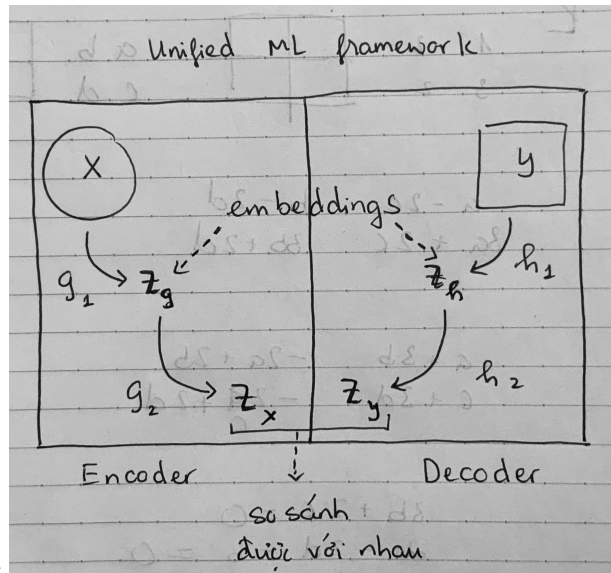 Unified ML framework
X
y
embeddings
g₁ z_g
z_h h₁
g₂ z_x
z_y h₂
Encoder Decoder
so sánh
được với nhau